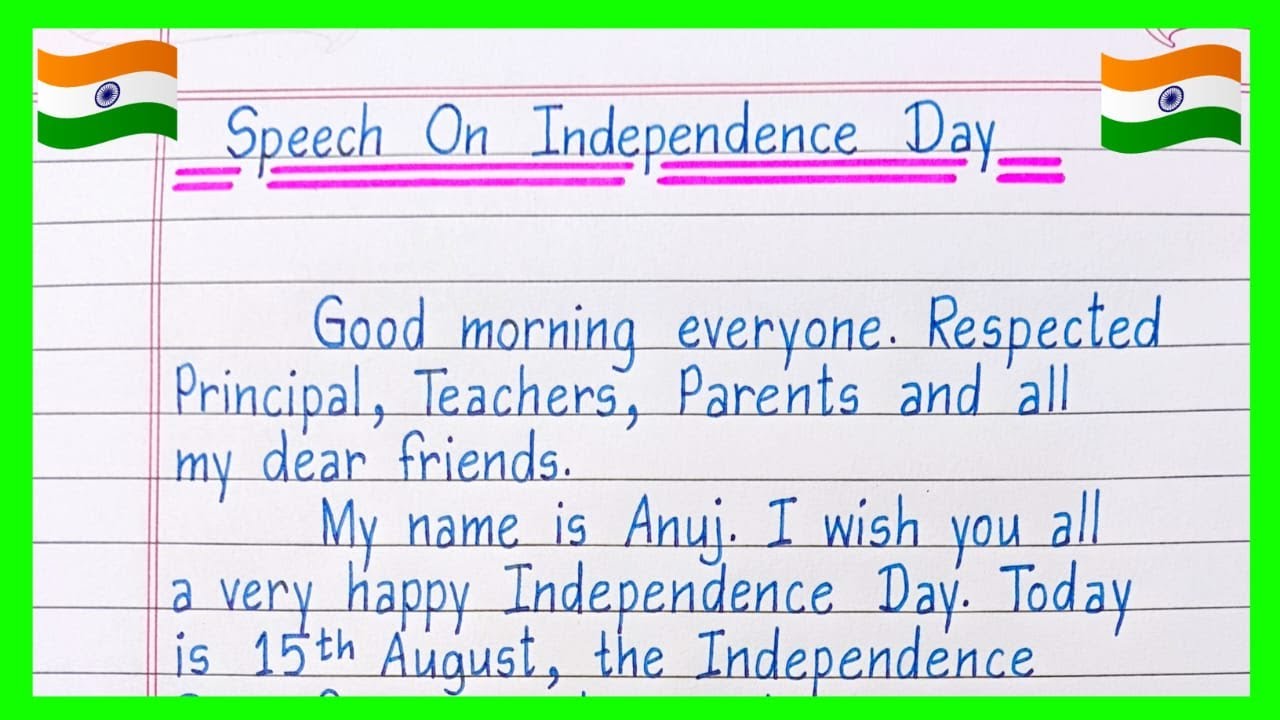 Speech On Independence Day
Good morning everyone. Respected
Principal, Teachers, Parents and all
my dear friends.
My name is Anuj. I wish you all
a very happy Independence Day. Today
is 15th August, the Independence